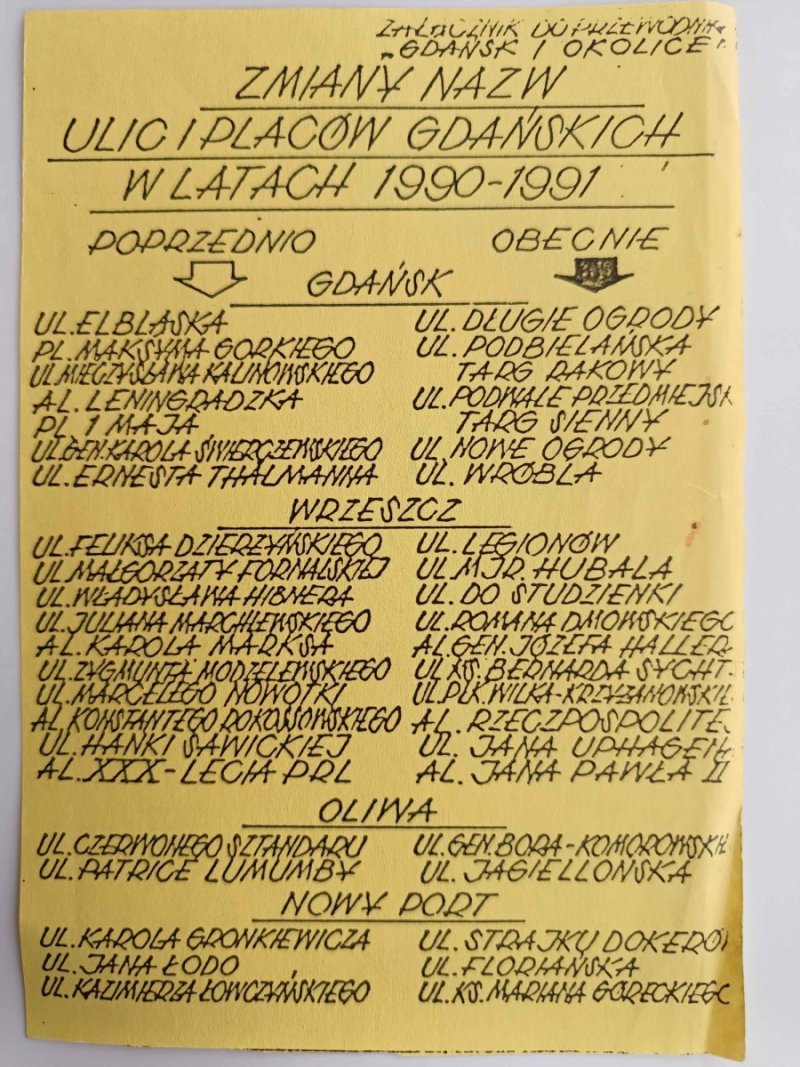 ZAŁĄCZNIK DO PRZEWODNIKA
„GDAŃSK I OKOLICE"
ZMIANY NAZW
ULIC I PLACÓW GDAŃSKICH
W LATACH 1990-1991
POPRZEDNIO OBECNIE
GDAŃSK
UL. ELBLĄSKA UL. DŁUGIE OGRODY
PL. MAKSYMA GORKIEGO UL. PODBIELAŃSKA
UL. MIECZYSŁAWA KALINOWSKIEGO TARG RAKOWY
AL. LENINGRADZKA UL. PODWALE PRZEDMIEJSK
PL. 1 MAJA TARG SIENNY
UL. GEN. KAROLA ŚWIERCZEWSKIEGO UL. NOWE OGRODY
UL. ERNESTA THALMANNA UL. WRÓBLA
WRZESZCZ
UL. FELIKSA DZIERŻYŃSKIEGO UL. LEGIONÓW
UL. MAŁGORZATY FORNALSKIEJ UL. MJR. HUBALA
UL. WŁADYSŁAWA HIBNERA UL. DO STUDZIENKI
UL. JULIANA MARCHLEWSKIEGO UL. ROMANA DMOWSKIEGO
AL. KAROLA MARKSA AL. GEN. JÓZEFA HALLER
UL. ZYGMUNTA MODZELEWSKIEGO UL. KS. BERNARDA SYCHT
UL. MARCELEGO NOWOTKI UL. PŁK. WILKA-KRZYŻANOWSKIE
AL. KONSTANTEGO ROKOSSOWSKIEGO AL. RZECZPOSPOLITEJ
UL. HANKI SAWICKIEJ UL. JANA UPHAGENA
AL. XXX-LECIA PRL AL. JANA PAWŁA II
OLIWA
UL. CZERWONEGO SZTANDARU UL. GEN. BORA-KOMOROWSKIE
UL. PATRICE LUMUMBY UL. JAGIELLOŃSKA
NOWY PORT
UL. KAROLA GRONKIEWICZA UL. STRAJKU DOKERÓW
UL. JANA ŁODO UL. FLORIAŃSKA
UL. KAZIMIERZA ŁOWCZYŃSKIEGO UL. KS. MARIANA GÓRECKIEGO